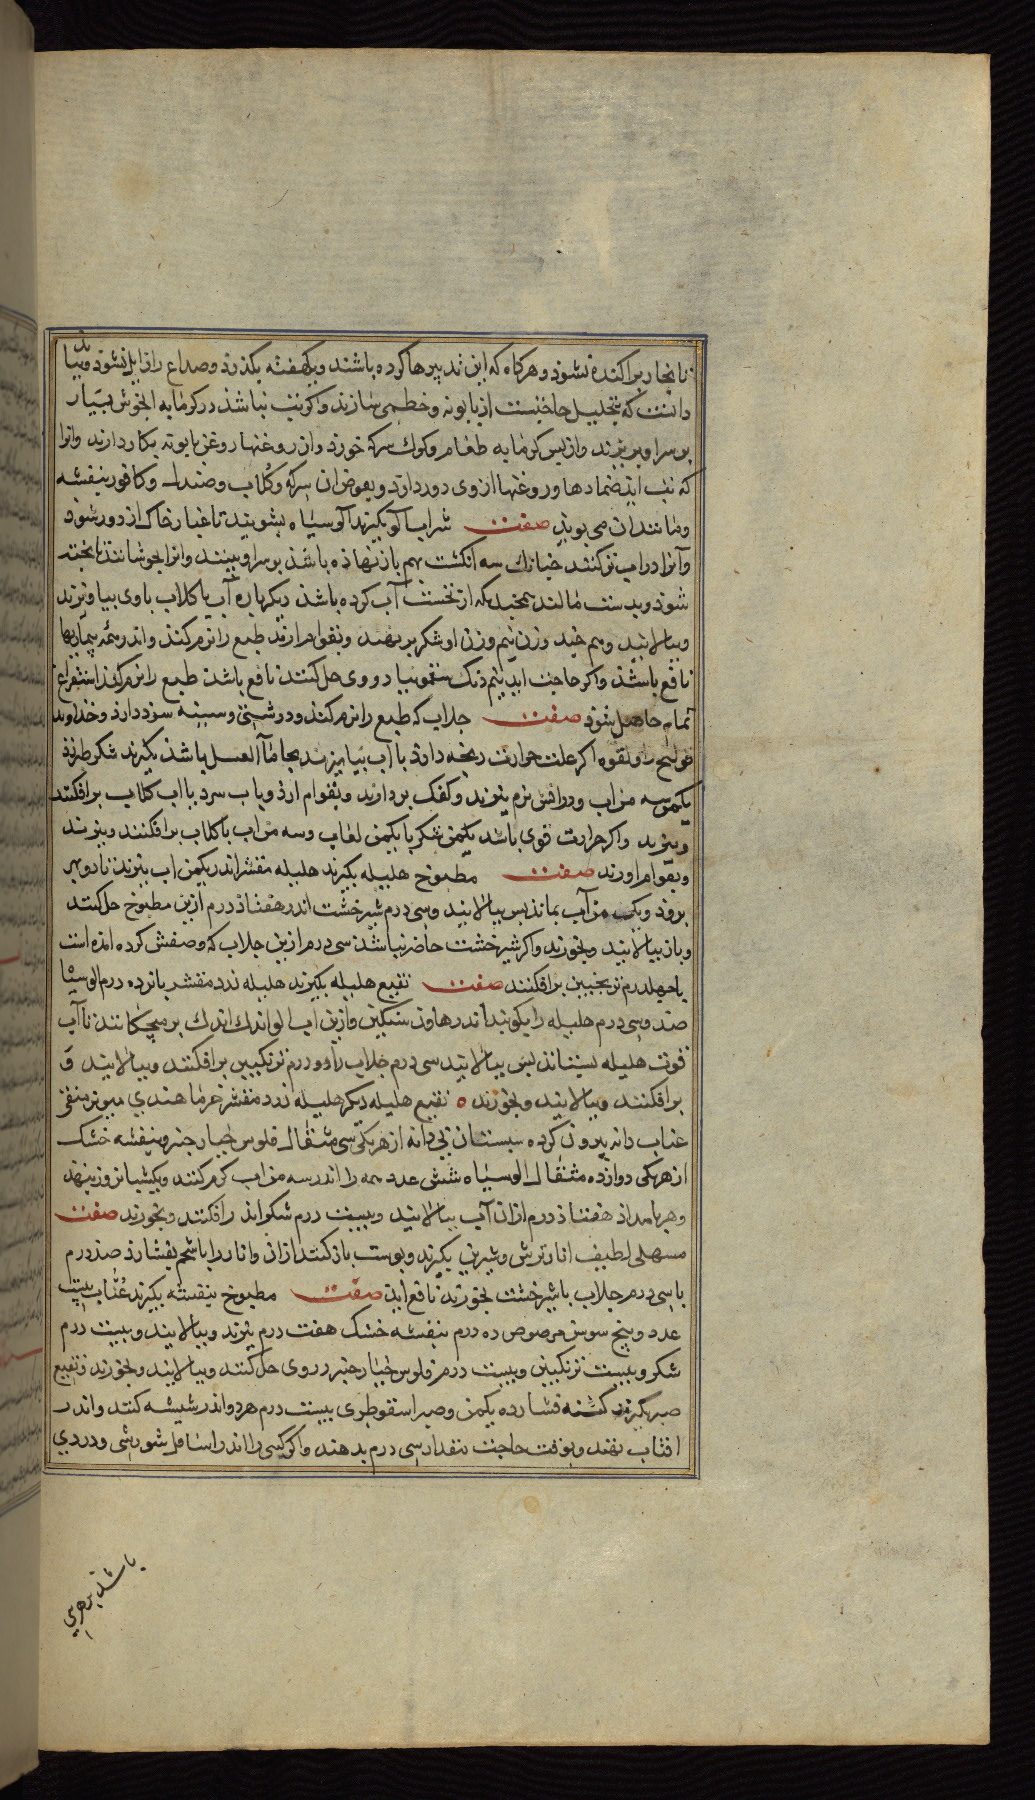 تا بخار پراکنده نشوذ و هرکاه که این تدبیرها کرده باشند و یکهفته بکذرذ و صداع زایل نشوذ و بباید
دانست که بتحلیل حاجتست از بابونه و خطمی سازند و اکر تب نباشذ در کرمابه آبخوش بسیار
بر سر او بریزند و از پس کرمابه طعام و کوک سرکه خورذ و از روغنها روغن بابونه بکار دارند و انرا
که تب ایذ ضمادها و روغنها از وی دور دارند و بعوض ان سرکه و کلاب و صندل و کافور بنفشه
و مانند ان می بویذ صفت شراب آلو بکیرند آلو سیاه بشویند تا غبار خاک از دور شود
و آنرا در آب تر کنند چنانک سه انکشت بهم باز نهاذه باشذ بر سر او ببینند و انرا بجوشانند تا پخته
شوذ و بدست مالند همچندکه از نخست آب کرده باشذ دیکر باره آب یا کلاب با وی بیامیزند
و بپالایند و هم چند وزن نیم وزن او شکر بر نهند و بقوام ارند طبع را نرم کنذ و اندر همه بیماریها
نافع باشذ و اکر حاجت ایذ نیم دنک سقمونیا در وی حل کنند نافع باشذ طبع را نرم کند استفراغ
تمام حاصل شوذ صفت جلاب که طبع را نرم کنذ و درشتی و سینه سوذ دارذ و خداوند
قولنج را و لقوه اکر علت حرارت رنجه دارذ با آب بیامیزند بجا ماآلعسل باشذ بکیرند شکر طبرزذ
یکمن سه من اب و در اتش نرم بپزند و کفک بردارند و بقوام ارذ و یا ب سرد یا اب کلاب برافکنند
و بپزند و اکر حرارت قوی باشد یکمن شکر با یکمن لعاب و سه من اب یا کلاب برافکنند و بپزند
و بقوام اورند صفت مطبوخ هلیله بکیرند هلیله مقشر اندر یکمن اب بپزند تا دو بهر
بروذ و یک من آب بماند پس بپالایند و سی درم شیرخشت اندر هفتاذ درم ازین مطبوخ حل کنند
و باز بپالایند و بخورند و اکر شیرخشت حاضر نباشذ سی درم ازین جلاب که وصفش کرده امذه است
یا چهل درم ترنجبین برافکنند صفت نقیع هلیله بکیرند هلیله زرد مقشر پانزده درم الو سیاه
صذ و سی درم هلیله را بکوبند اندر هاون سنکین و ازین اب الو اندک اندک بر میچکانند تا آب
قوت هلیله بستاند پس بپالایند سی درم جلاب را و درم ترنکبین برافکنند و بپالایند و
برافکنند و بپالایند و بخورند ه نقیع هلیله دیکر هلیله زرد مقشر خرما هندی مویز منقی
عناب دانه بیرون کرده سبستان بی دانه از هر یکی سی مثقال فلوس خیار جنبر بنفشه خشک
از هر یکی دوازده مثقال الو سیاه شش عدد همه را اندر سه من اب کرم کنند و یکشبانروز بنهند
و هر بامداذ هفتاذ درم از ان آب بپالایند و بیست درم شکر اندر افکنند و بخورند صفت
مسهلی لطیف انار ترش و شیرین بکیرند و پوست باز کنند از ان و انار را با شحم بفشارذ صذ درم
با سی درم جلاب یا شیرخشت بخورند نافع ایذ صفت مطبوخ بنفشه بکیرند عناب بیست
عدد و پنج سوس مرضوض ده درم بنفشه خشک هفت درم بپزند و بپالایند و بیست درم
شکر و بیست ترنکبین و بیست درم فلوس خیار جنبر در وی حل کنند و بپالایند و بخورند نقیع
صبر بکیرند کسنه فشارده یکمن و صبر اسقوطری بیست درم هر دو اندر شیشه کنند و اندر
افتاب نهند و بوقت حاجت مقدار سی درم بدهند و اکر کسی را اندر اسافل شورشی و دردی
باشذ بهر سی